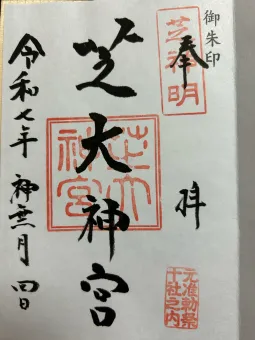 御朱印
奉拝
芝神明
芝大神宮
芝大神宮
元准勅祭
十社之内
令和七年 神無月 四日